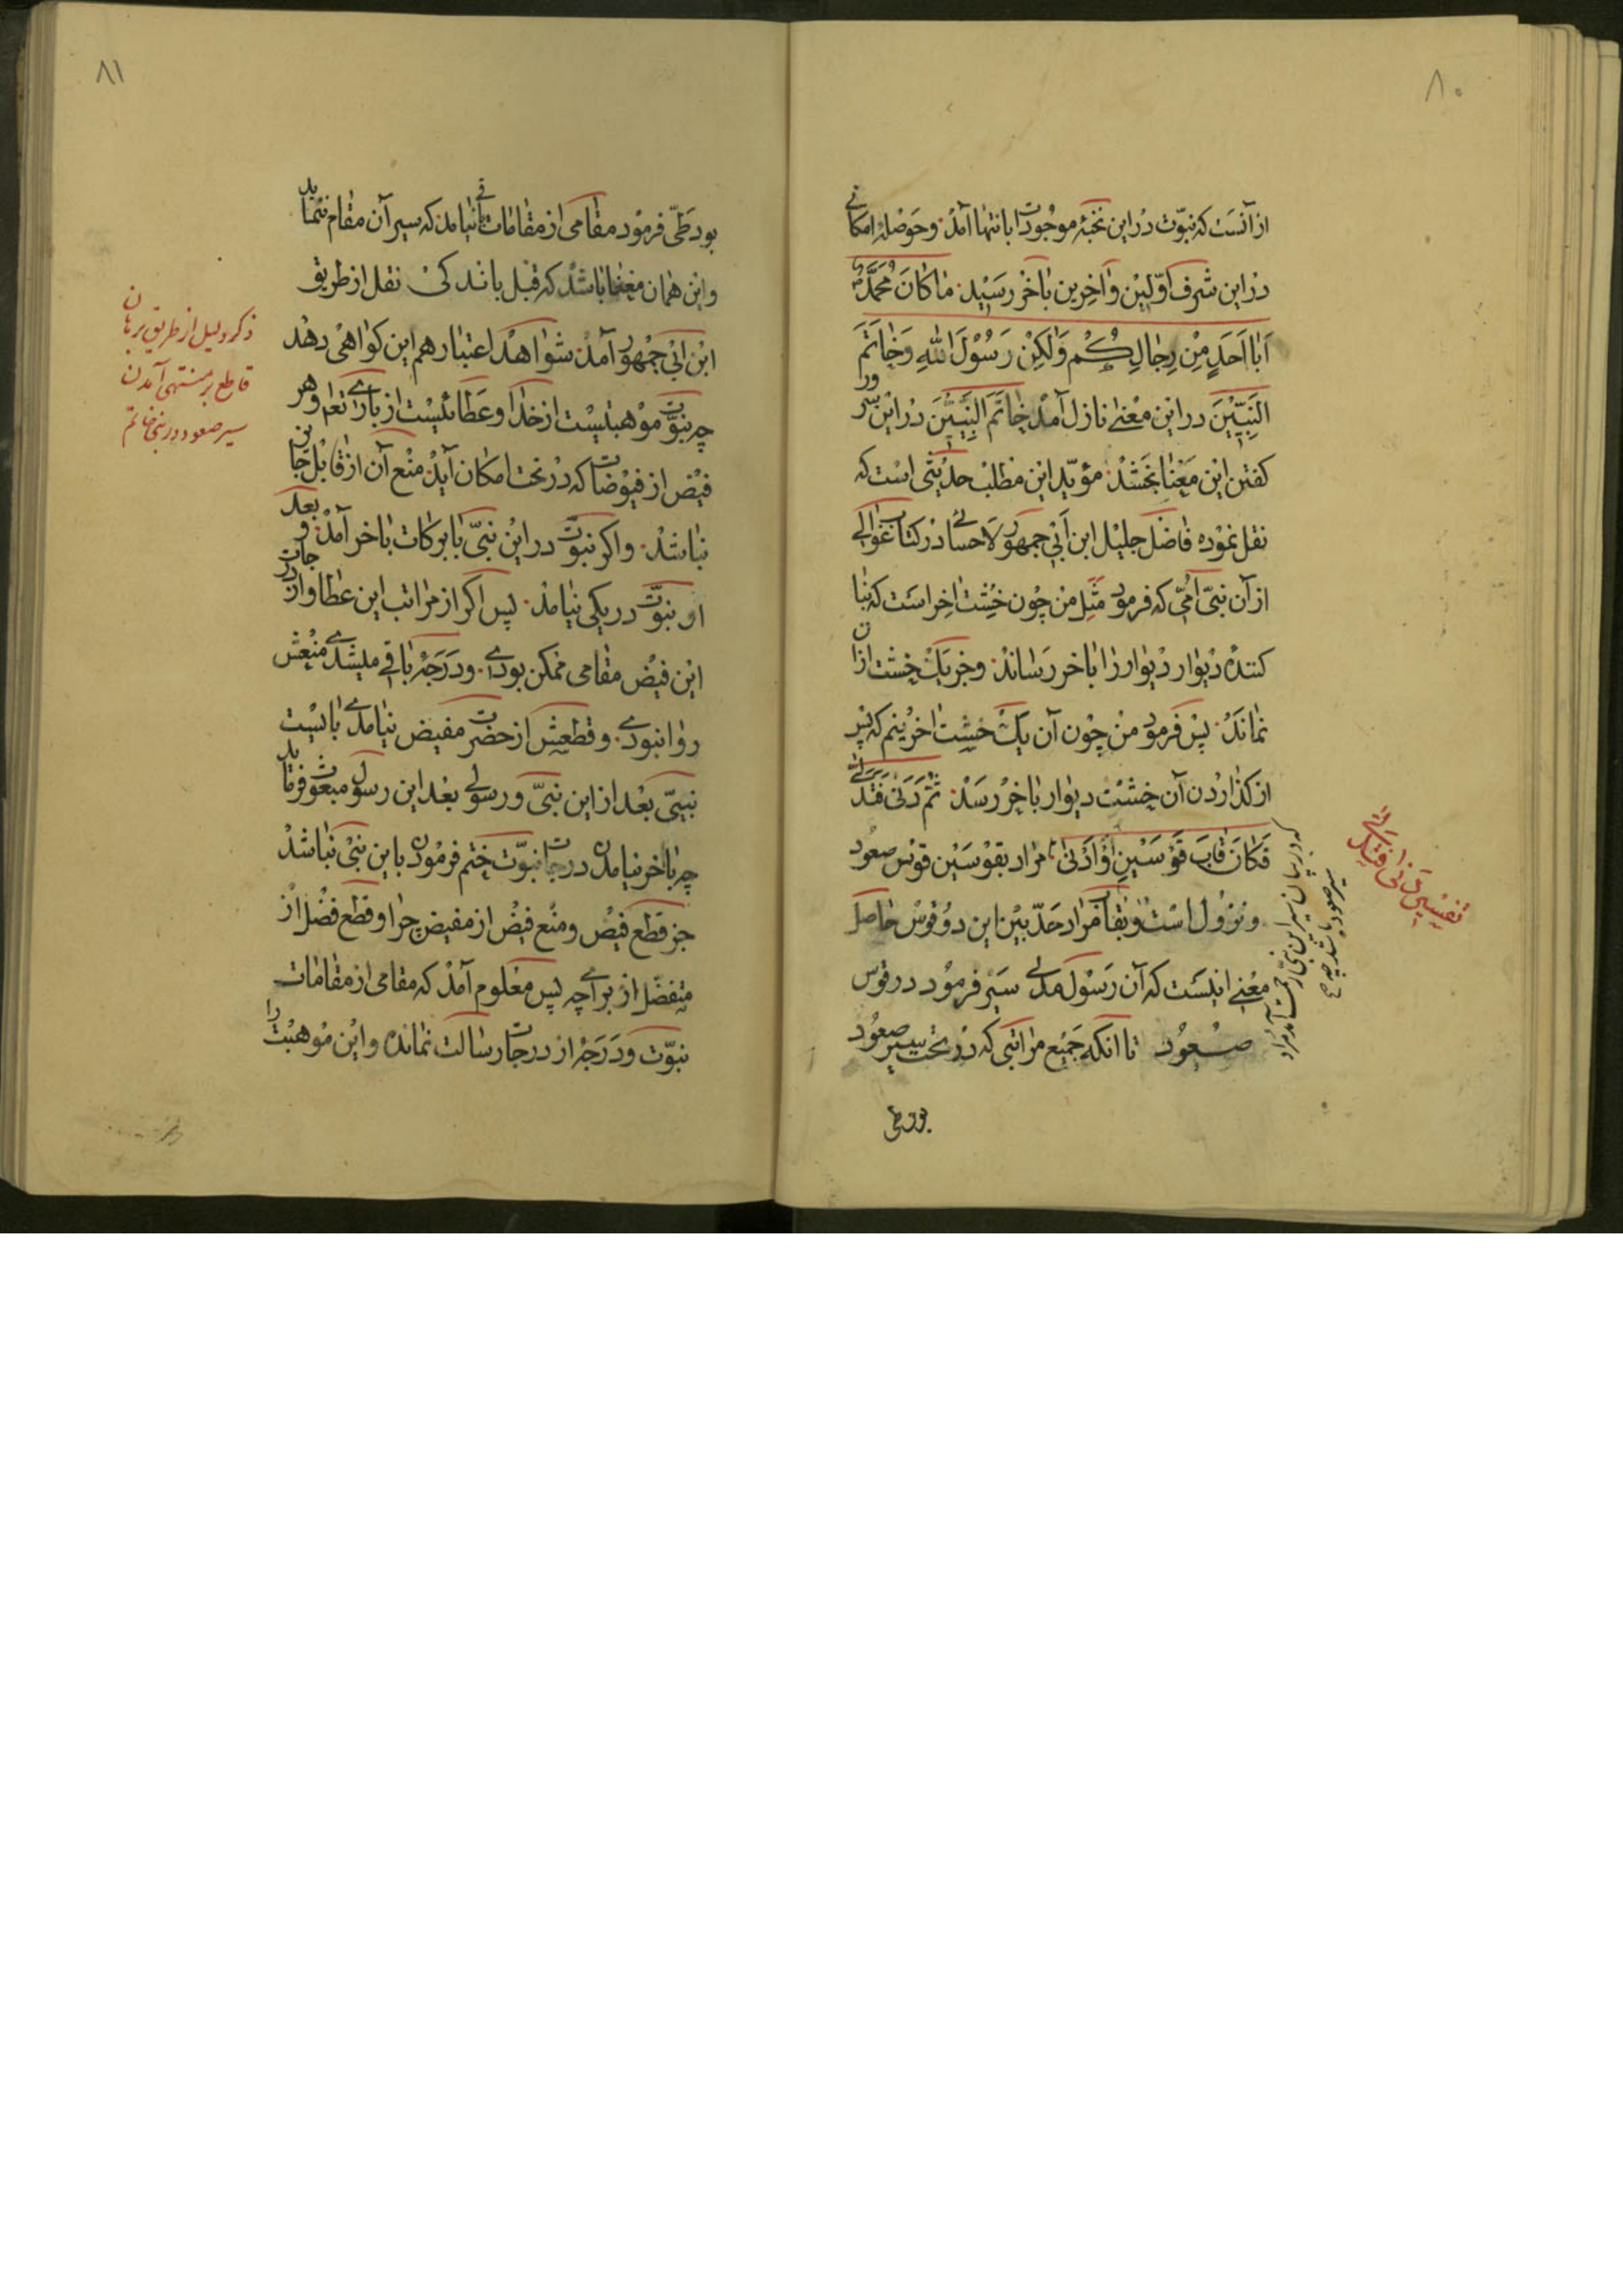 ۸۰
از آنست که نبوّت در این نخبهٔ موجودات بانتها آمد و حوصلهٔ امکانی
در این شرف اوّلین و آخرین بآخر رسید ما کانَ مُحَمَّدٌ
اَبا اَحَدٍ مِنْ رِجالِکُم وَلٰکِنْ رَسُوْلَ اللهِ وَخاتَمَ
النَبِیّیْنَ در این معنی نازل آمد خاتَمَ النَبِیّیْنَ در این سرّ ور
کفتن این معنا بخشد مؤیّد این مطلب حدیثی است که
نقل نموده فاضل جلیل ابن ابی جمهور لاحسائی در کتاب غوالی
از آن نبیّ امّی که فرمود مثل من چون خشت اخر است که بنا
کننده دیوار دیوار را باخر رساند و جز یک خشت ازان
نماند پس فرمود من چون آن یک خشت اخرینم که پس
از کذاردن آن خشت دیوار باخر رسد ثُمَّ دَنیٰ فَتَدَلّیٰ
فَکانَ قابَ قَوْسَیْنِ اَوْ اَدْنیٰ مراد بقوسین قوس صعود
و نزول است و بقاب مراد حدّ بین این دو قوس حاصل
معنی اینست که آن رسول مدنی سیر فرمود در قوس
صعود تا انکه جمیع مراتبی که در تحت سیر صعود
بود طی
تفسیر دنی فتدلی
که در پایان سیر این نبیّ رحمت آمد مراد
سیر صعود باشد چه
۸۱
بود طَیّ فرمود مقامی از مقامات باقی نیامد که سیر آن مقام ننماید
و این همان معنا باشد که قبل باندکی نقل از طریق
ابن ابی جمهور آمد شواهد اعتبار هم این کواهی دهد
چه نبوّت موهبتیست از خدا و عطائیست از باری تعم و هر
فیض از فیوضات که در تحت امکان آید منع آن از قابل جایز
نباشد و اکر نبوّت در این نبیّ با برکات باخر آمد و بعد
او نبوّت در یکی نیامد پس اکر از مراتب این عطا و از درجات
این فیض مقامی ممکن بودی و درجه باقی میشدی منعش
روا نبودی و قطعش از حضرت مفیض نیامدی بایست
نبیّی بعد از این نبیّ و رسولی بعد این رسول مبعوث فرماید
چه باخر نیامدن درجات نبوّت ختم فرمودن باین نبیّ نباشد
جز قطع فیض و منع فیض از مفیض چرا و قطع فضل از
متفضّل از برای چه پس معلوم آمد که مقامی از مقامات
نبوّت و درجهٔ از درجات رسالت نمانده و این موهبت را
ذکر دلیل از طریق برهان
قاطع بر منتهی آمدن
سیر صعود در نبی خاتم